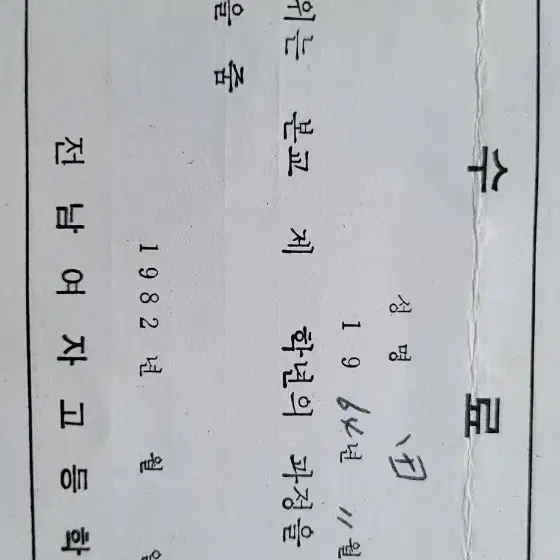 수 료
성 명
19 64년 11월
위는 본교 제 학년의 과정을
을 줌
1982년 월 일
전 남 여 자 고 등 학